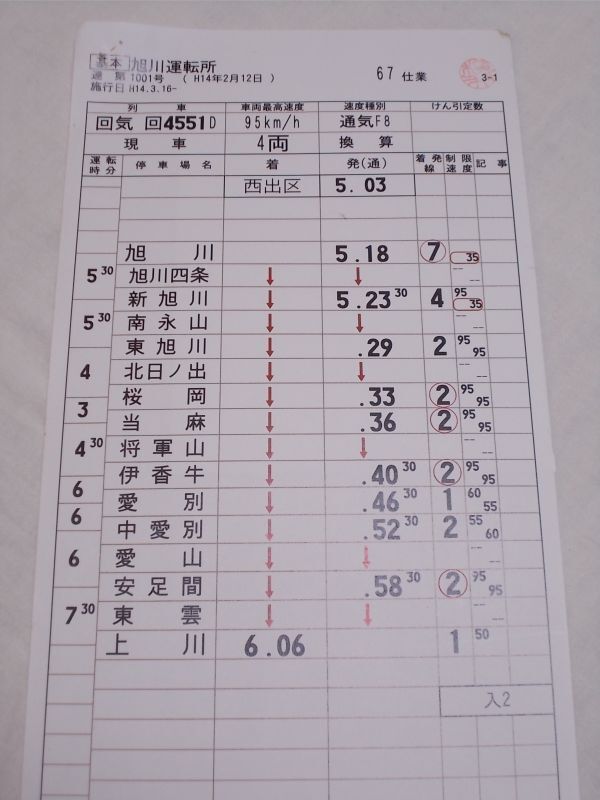 基本 旭川運転所
運 第1001号 ( H14年2月12日 ) 67 仕業
施行日 H14.3.16- 3-1
列 車 車両最高速度 速度種別 けん引定数
回気 回4551D 95km/h 通気F8
現 車 4両 換 算
運転時分 停車場名 着 発(通) 着発線 制限速度 記事
西出区 5.03
旭 川 5.18 7 35
5 30
旭川四条 ↓ ↓ -- --
新旭川 ↓ 5.23 30 4 95 35
5 30
南永山 ↓ ↓ -- --
東旭川 ↓ .29 2 95 95
4
北日ノ出 ↓ ↓ -- --
桜 岡 ↓ .33 2 95 95
3
当 麻 ↓ .36 2 95 95
4 30
将軍山 ↓ ↓ -- --
伊香牛 ↓ .40 30 2 95 95
6
愛 別 ↓ .46 30 1 60 55
6
中愛別 ↓ .52 30 2 55 60
6
愛 山 ↓ ↓ -- --
安足間 ↓ .58 30 2 95 95
7 30
東 雲 ↓ ↓ -- --
上 川 6.06 1 50
入2